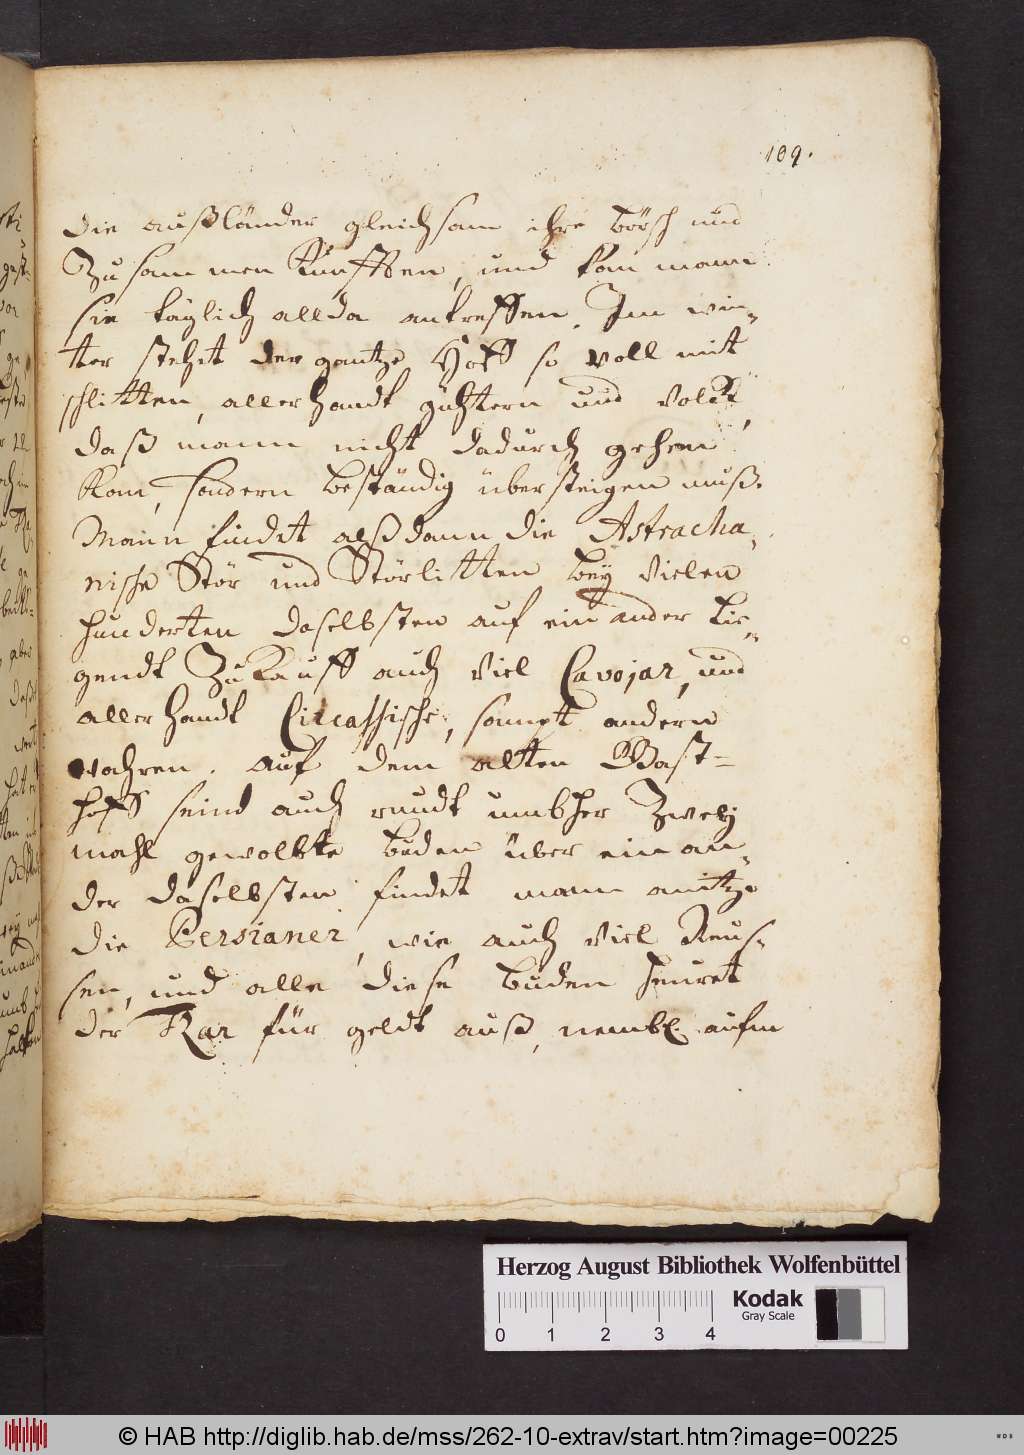 109.
die außländer gleichsam ihre börsch und
Zusammen Kunfften, und kan mann
sie täglich allda antreffen. Im win-
ter stehet der gantze Hoff so voll mit
schlitten, allerhandt gühtern und Volck,
daß mann nicht dadurch gehen
kan, sondern beständig übersteigen muß.
Mann findet alßdann die Astracha-
nische Stör und Störlitten bey Vielen
hunderten daselbsten auf einander lie-
gendt Zu Kauff auch Viel Cavojar, und
allerhandt Circassische, sampt andern
wahren. Auf dem alten Gast=
hoff seind auch rundt umbher Zwey
mahl gewolbte buden über einan-
der daselbsten findet mann anitzo
die Persianer, wie auch Viel Reus-
sen, und alle diese buden heuret
der Zar für geldt auß, nembl. aufm
Herzog August Bibliothek Wolfenbüttel
0 1 2 3 4
Kodak
Gray Scale
© HAB http://diglib.hab.de/mss/262-10-extrav/start.htm?image=00225